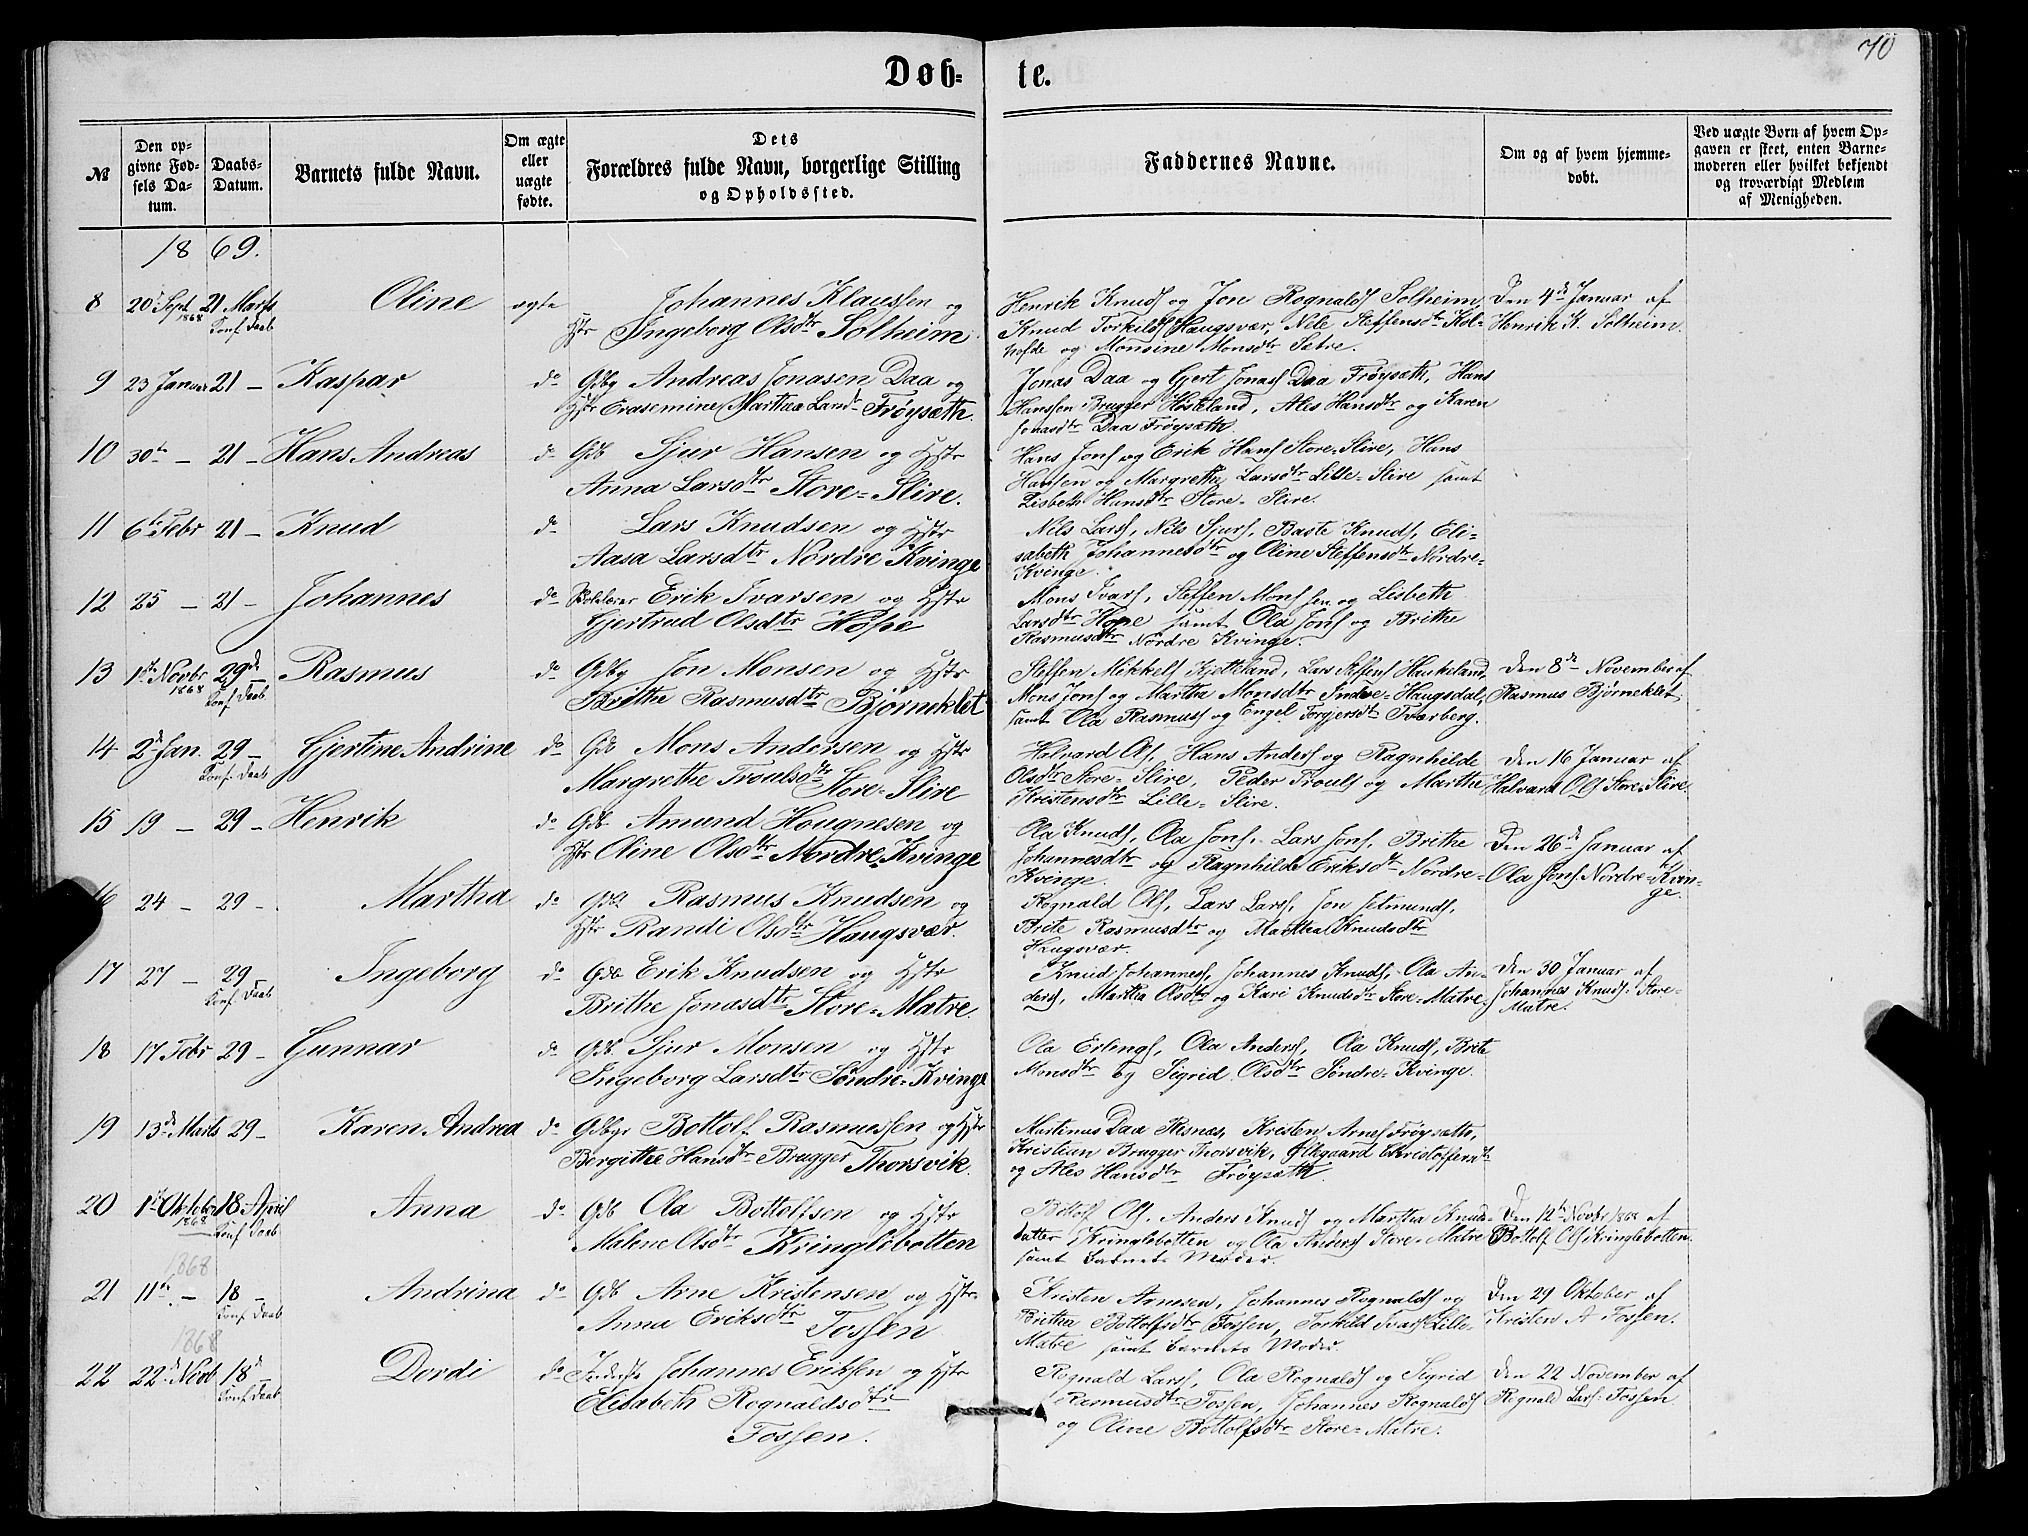 Døb-te.
70
№
Den op-
givne Fød-
sels Da-
tum.
Daabs-
Datum.
Barnets fulde Navn.
Om ægte
eller
uægte
fødte.
Dets
Forældres fulde Navn, borgerlige Stilling
og Opholdssted.
Faddernes Navne.
Om og af hvem hjemme-
døbt.
Ved uægte Børn af hvem Op-
gaven er skeet, enten Barne-
moderen eller hvilket bekjendt
og troværdigt Medlem
af Menigheden.
1869.
8 20 Sept 1868 21 Marts Conf. Daab Oline ægte Johannes Klaussen og
Hstr Ingeborg Olsdtr Solheim.
Henrik Knuds og Jon Rognalds Solheim,
Knud Torkilds Haugsvær, Nille Steffensdtr Kol-
hofde og Monsine Monsdtr Sætre.
Den 4de Januar af
Henrik K. Solheim.
9 23 Januar 21 – Kaspar do Gdbg Andreas Jonasen Daa og
Hstr Erasemine Marthea Larsdtr Frøysæth.
Jonas Daa og Gjert Jonass Daa Frøysæth, Hans
Hanssen Brugger Høsteland, Ales Hansdtr og Karen
Jonasdtr Daa Frøysæth.
10 30te – 21 – Hans Andreas do Gdb Sjur Hansen og Hstr
Anna Larsdtr Store-Slire.
Hans Jons og Erik Hans Store-Slire, Hans
Hansen og Margrethe Larsdtr Lille-Slire samt
Lisbeth Hansdtr Store-Slire.
11 6te Febr 21 – Knud do Lars Knudsen og Hstr
Aasa Larsdtr Nordre Kvinge
Nils Lars, Nils Sjurs, Baste Knuds, Eli-
sabeth Johannesdtr og Oline Steffensdtr Nordre-
Kvinge.
12 25 – 21 – Johannes do Erik Ivarsen og Hstr
Gjertrud Olsdtr Hope
Mons Ivars, Steffen Monssen og Lisbeth
Larsdtr Hope samt Ola Jons og Brithe
Rasmusdtr Nordre Kvinge.
13 1ste Novbr 1868 29de Conf. Daab Rasmus do Gdbg Jon Monsen og Hstr
Brithe Rasmusdtr Bjørneklet
Steffen Mikkels Kjetteland, Lars Steffens Haukeland,
Mons Jons og Martha Monsdtr Indre-Haugsdal,
samt Ola Rasmuss og Engel Torgjersdtr Tværberg.
Den 8de November af
Rasmus Bjørneklet.
14 2d Jan. 29 – Conf. Daab Gjertine Andrine do Gdb Mons Andersen og Hstr
Margrethe Troulsdtr Store-Slire
Halvard Ols, Hans Anders og Ragnhilde
Olsdtr Store-Slire, Peder Trouls og Marthe
Kristensdtr Lille-Slire.
Den 16 Januar af
Halvard Ols Store-Slire.
15 19 – 29 – Henrik do Gdb Amund Hougnesen og
Hstr Oline Olsdtr Nordre Kvinge
Ola Knuds, Ola Jons, Lars Jons, Brithe
Johannesdtr og Ragnhilde Eriksdtr Nordre-
Kvinge.
Den 26de Januar af
Ola Jons. Nordre-Kvin-
ge.
16 24 – 29 – Martha do Gdb Rasmus Knudsen og
Hstr Randi Olsdtr Haugsvær.
Rognald Ols, Lars Lars, Jon Jetmunds,
Brite Rasmusdtr og Marthea Knudsdtr
Haugsvær.
17 27 – 29 – Conf. Daab Ingeborg do Gdb Erik Knudsen og Hstr
Brithe Jonasdtr Store-Matre.
Knud Johanness, Johannes Knuds, Ola An-
ders, Martha Olsdtr og Kari Knudsdtr Store-Matre.
Den 30 Januar af
Johannes Knuds: Store-
Matre.
18 17 Febr 29 – Gunnar do Gdb. Sjur Monsen og Hstr
Ingeborg Larsdtr Søndre-Kvinge
Ola Erlings, Ola Anders, Ola Knuds, Brite
Monsdtr og Sigrid Olsdtr Søndre-Kvinge.
19 13de Marts 29 – Karen Andrea do Gdbgr Bottolf Rasmussen og Hstr
Bergitthe Hansdtr Brugger Thorsvik.
Martinus Daa Risnes, Kristen Arnes Frøysæth,
Kristian Brugger Thorsvik, Ølegaard Kristoffersdtr
og Ales Hansdtr Frøysæth.
20 1ste Oktober 1868 18 April Conf. Daab Anna do Gdb Ola Bottolfsen og Hstr
Malene Olsdtr Kringlebotten
Botolf Ols, Anders Knuds og Marthe Knuds-
datter Kringlebotten og Ola Anders Store-Matre
samt Barnets Moder.
Den 12te Novbr 1868 af
Bottolf Ols Kringlebotten.
1868
21 11te – 18 – Conf Daab Andrina do Gdb Arne Kristensen og Hstr
Anna Eriksdtr Fossen
Kristen Arnesen, Johannes Rognalds og
Brithe Bottolfsdtr Fossen, Torkild Ivars Lille-
Matre samt Barnets Moder.
Den 29 Oktober af
Kristen A Fossen.
1868
22 22de Nov 18de Conf. Daab Dordi do Inderste Johannes Eriksen og Hstr
Elisabeth Rognaldsdtr
Fossen.
Rognald Lars, Ola Rognalds og Sigrid
Rasmusdtr Fossen, Johannes Rognalds
og Oline Bottolfsdtr Store-Matre.
Den 22 November af
Rognald Lars: Fossen